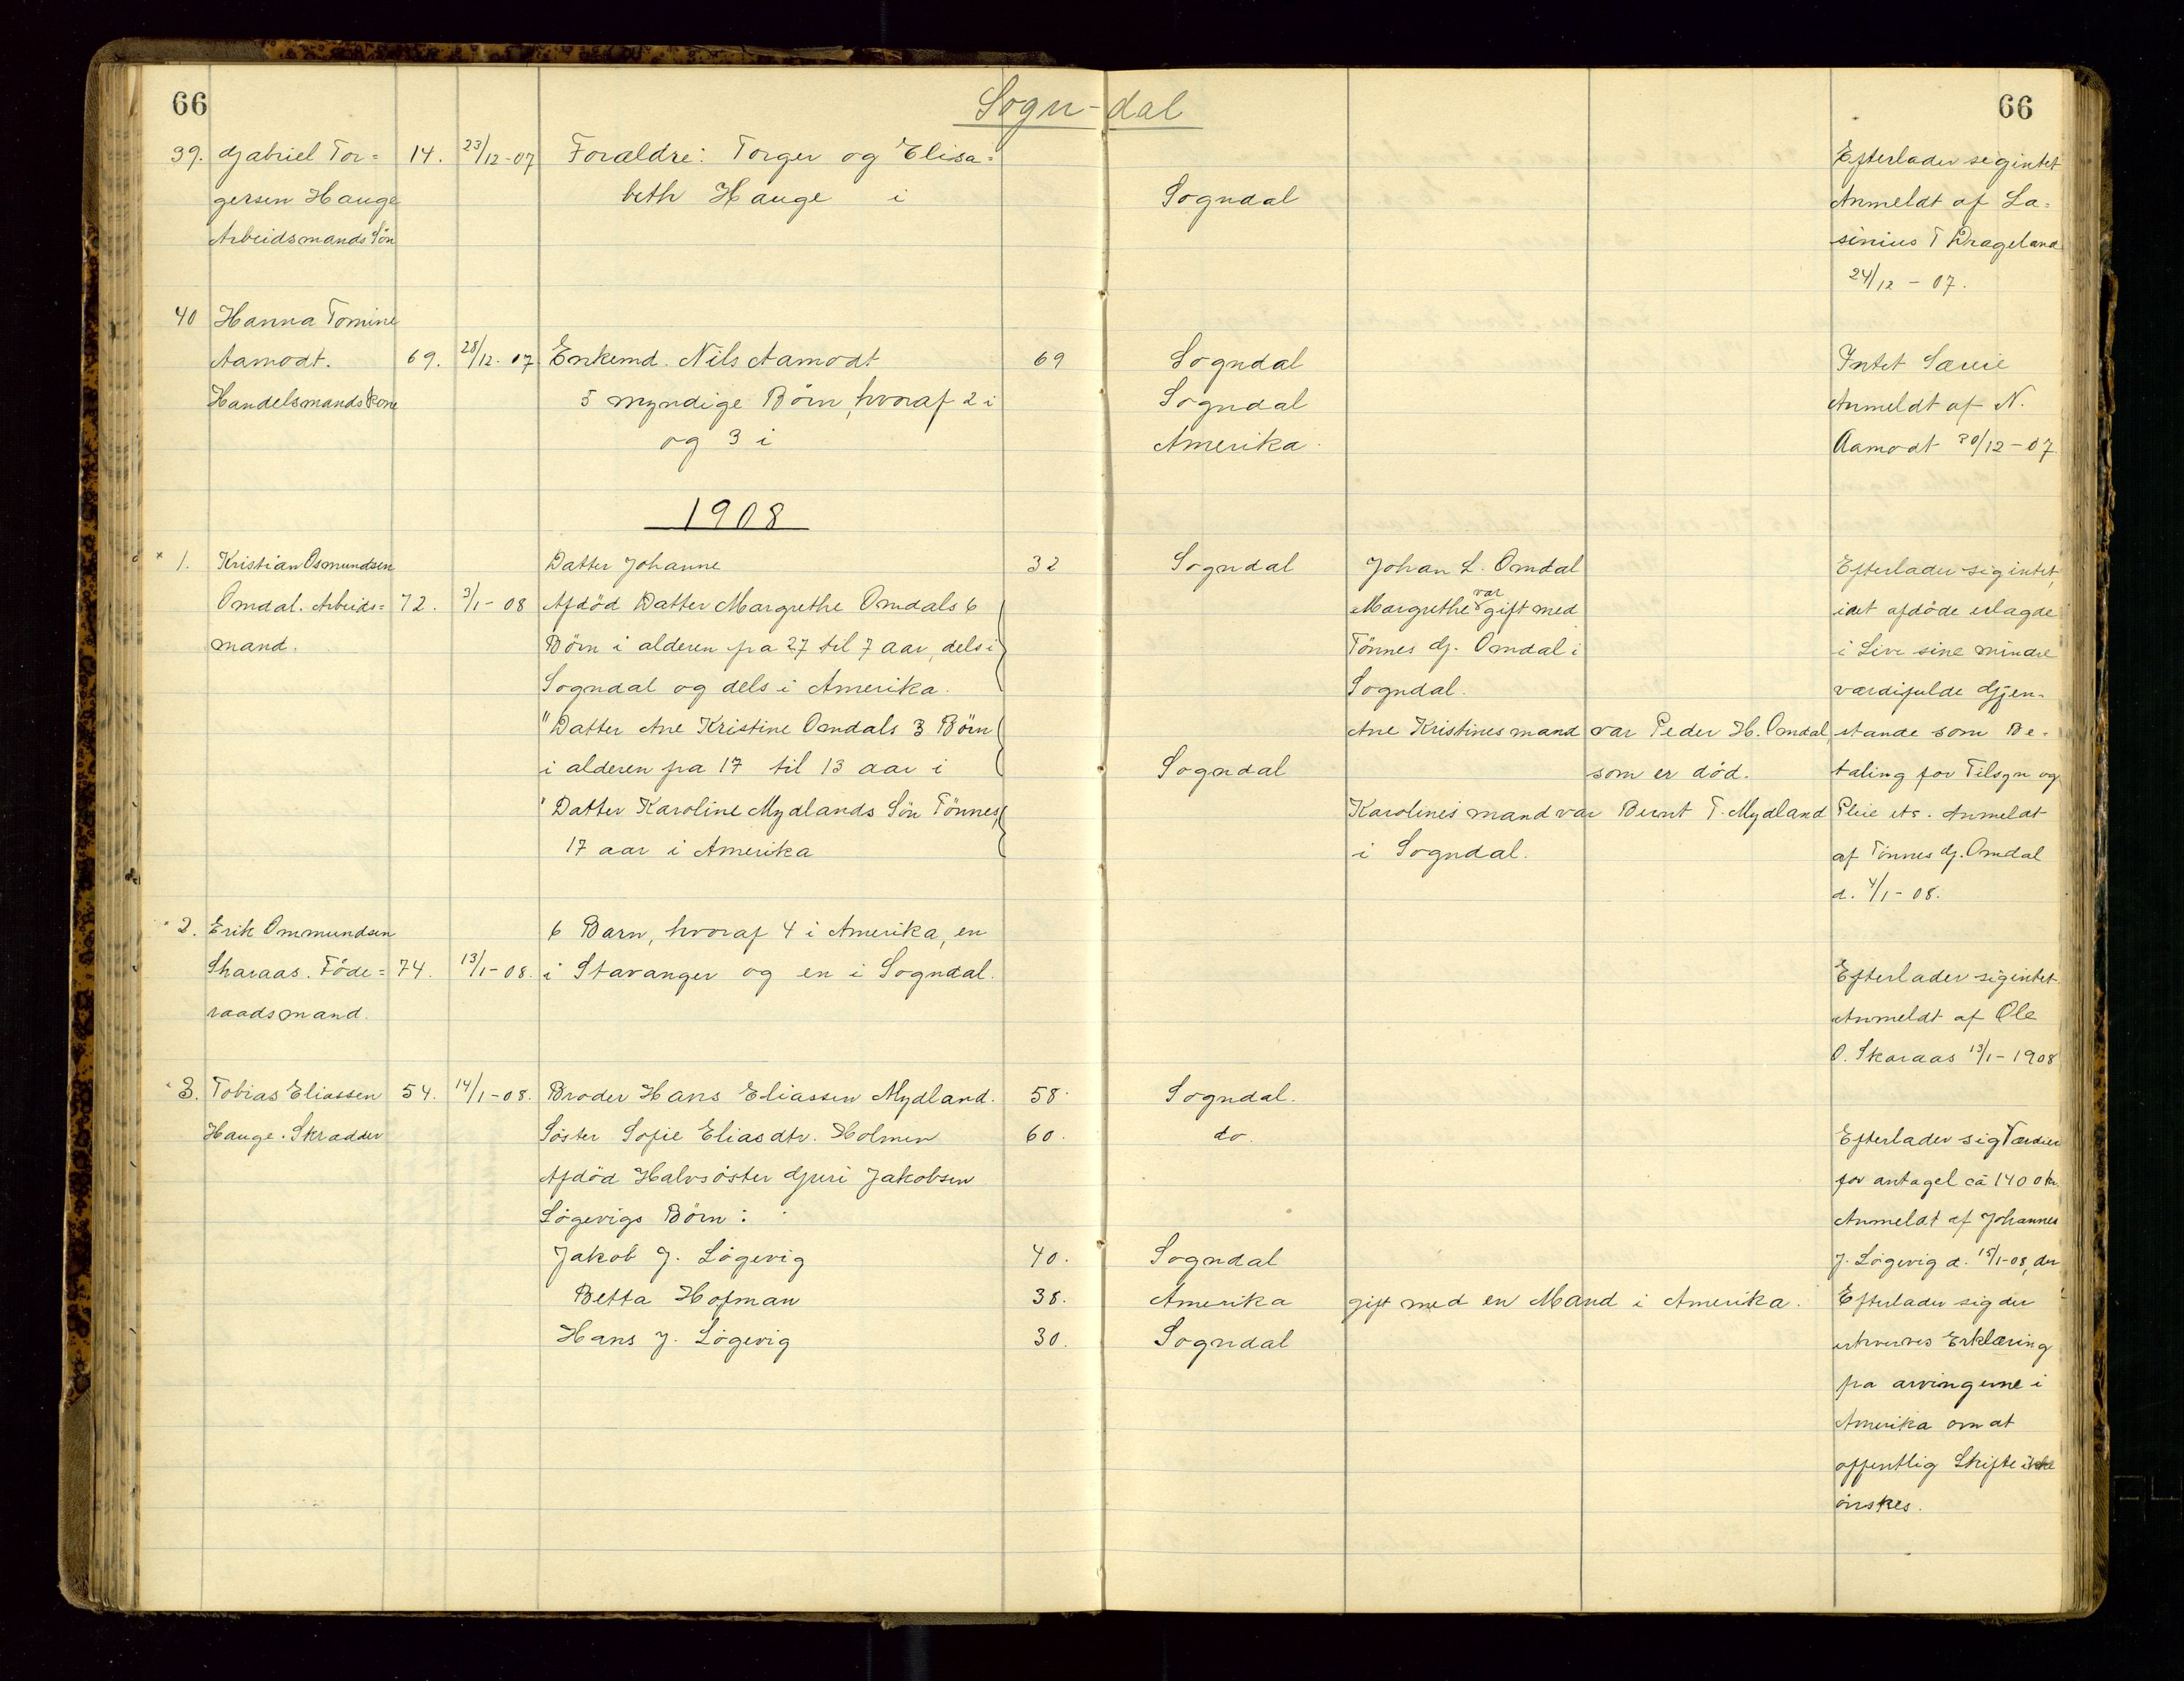 66
Sogn-dal
66
39. Gabriel Tor= 14. 23/12-07 Forældre: Torger og Elisa= Efterlader sig intet
gersen Hauge beth Hauge i Sogndal Anmeldt af La=
Arbeidsmands Sön sinius T Drageland
24/12 - 07.
40 Hanna Tomine
Aamodt. 69. 28/12. 07 Enkemd. Nils Aamodt 69 Sogndal Intet Særeie
Handelsmandskone 5 myndige Börn, hvoraf 2 i Sogndal Anmeldt af N.
og 3 i Amerika. Aamodt 30/12-07
1908
1. Kristian Osmundsen Datter Johanne 32 Sogndal Johan L. Omdal Efterlader sig intet,
Omdal. Arbeids= 72. 3/1-08 Afdöd Datter Margrethe Omdals 6 Margrethe var gift med idet afdöde erlagde
mand. Börn i alderen fra 27 til 7 aar, dels i Tönnes G. Omdal i i Live sine mindre
Sogndal og dels i Amerika. Sogndal. værdifulde Gjen-
" Datter Ane Kristine Omdals 3 Börn Ane Kristines mand var Peder H. Omdal, stande som Be-
i alderen fra 17 til 13 aar i Sogndal som er död. taling for Tilsyn og
" Datter Karoline Mydlands Sön Tönnes, Karolines mand var Bernt T. Mydland Pleie etc. Anmeldt
17 aar i Amerika i Sogndal. af Tönnes G. Omdal
d. 4/1-08.
2. Erik Ommundsen 6 Barn, hvoraf 4 i Amerika, en
Skaraas. Föde= 74. 13/1-08. i Stavanger og en i Sogndal. Efterlader sig intet.
raadsmand. Anmeldt af Ole
O. Skaraas 13/1-1908
3. Tobias Eliassen 54. 14/1-08. Broder Hans Eliassen Mydland. 58. Sogndal.
Hauge. Skrædder Söster Sofie Eliasdtr. Holmen 60. do. Efterlader sig Værdier
Afdöd Halvsöster Guri Jakobsen for antagel ca 1400 kr.
Lögevigs Börn: Anmeldt af Johannes
Jakob J. Lögevig 40. Sogndal J. Lögevig d. 15/1-08, der
Betta Hofman 38. Amerika gift med en Mand i Amerika. Efterlader sig der
Hans J. Lögevig 30. Sogndal erhverves Erklæring
fra arvingerne i
Amerika om at
offentlig Skifte ikke
önskes.